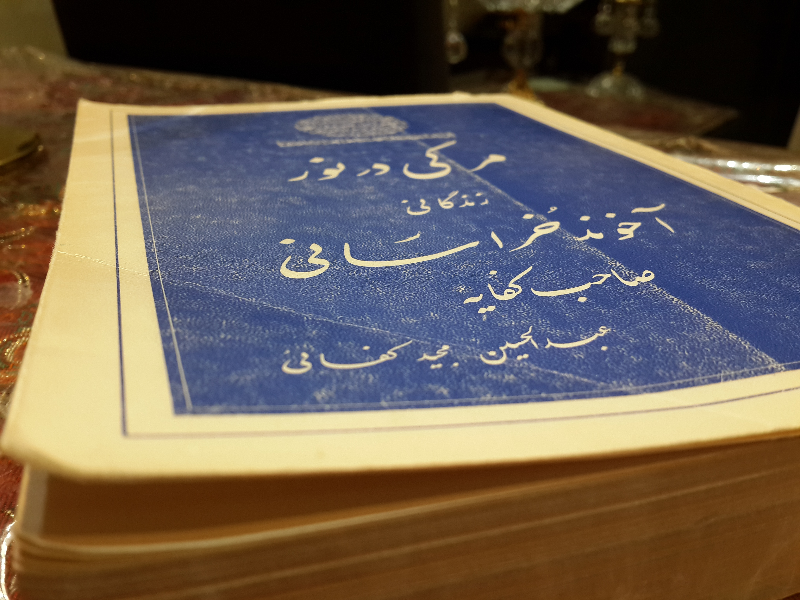 مرگی در نور
زندگانی
آخوند خُراسانی
صاحب کفایه
عبدالحسین مجید کفائی